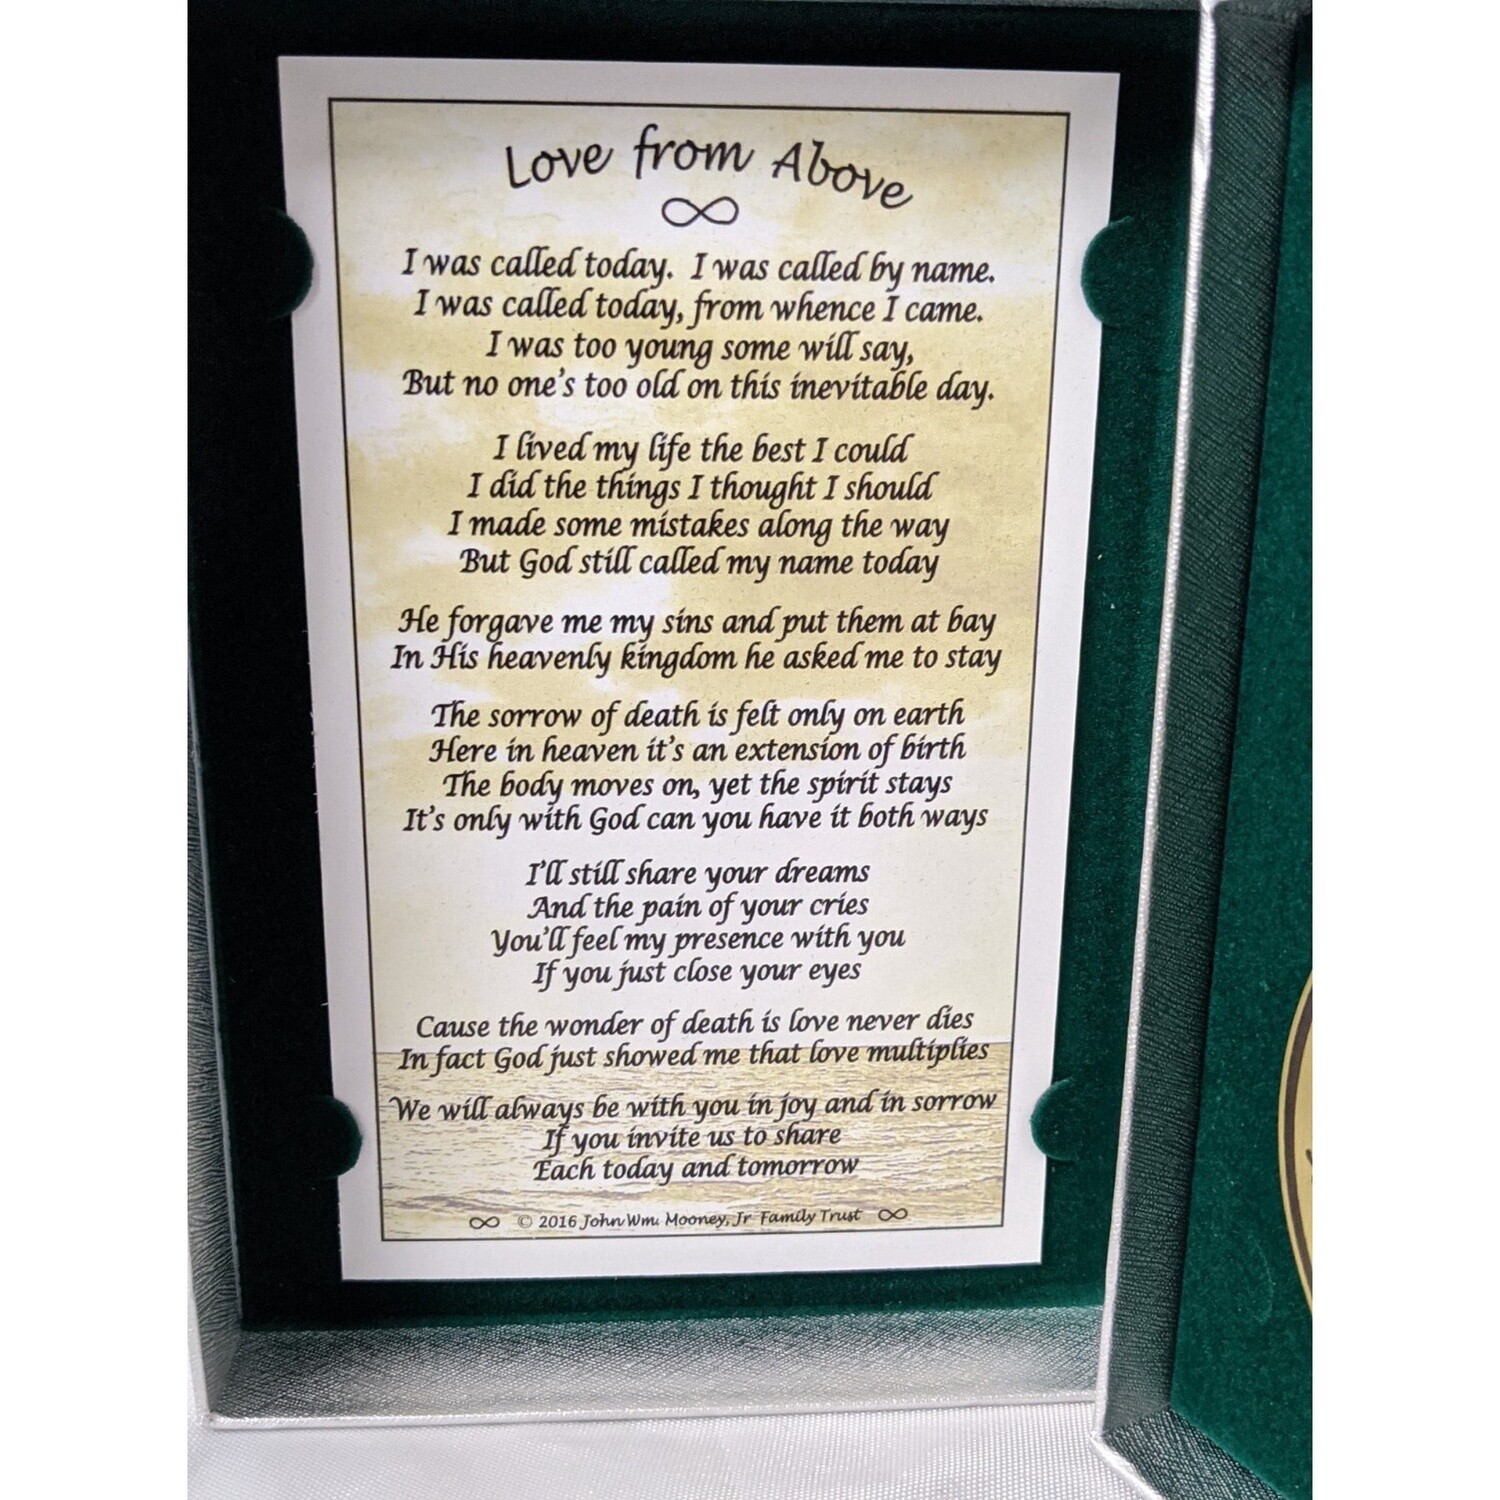 Love from Above
∞
I was called today. I was called by name.
I was called today, from whence I came.
I was too young some will say,
But no one's too old on this inevitable day.
I lived my life the best I could
I did the things I thought I should
I made some mistakes along the way
But God still called my name today
He forgave me my sins and put them at bay
In His heavenly kingdom he asked me to stay
The sorrow of death is felt only on earth
Here in heaven it's an extension of birth
The body moves on, yet the spirit stays
It's only with God can you have it both ways
I'll still share your dreams
And the pain of your cries
You'll feel my presence with you
If you just close your eyes
Cause the wonder of death is love never dies
In fact God just showed me that love multiplies
We will always be with you in joy and in sorrow
If you invite us to share
Each today and tomorrow
∞ © 2016 John Wm. Mooney, Jr Family Trust ∞